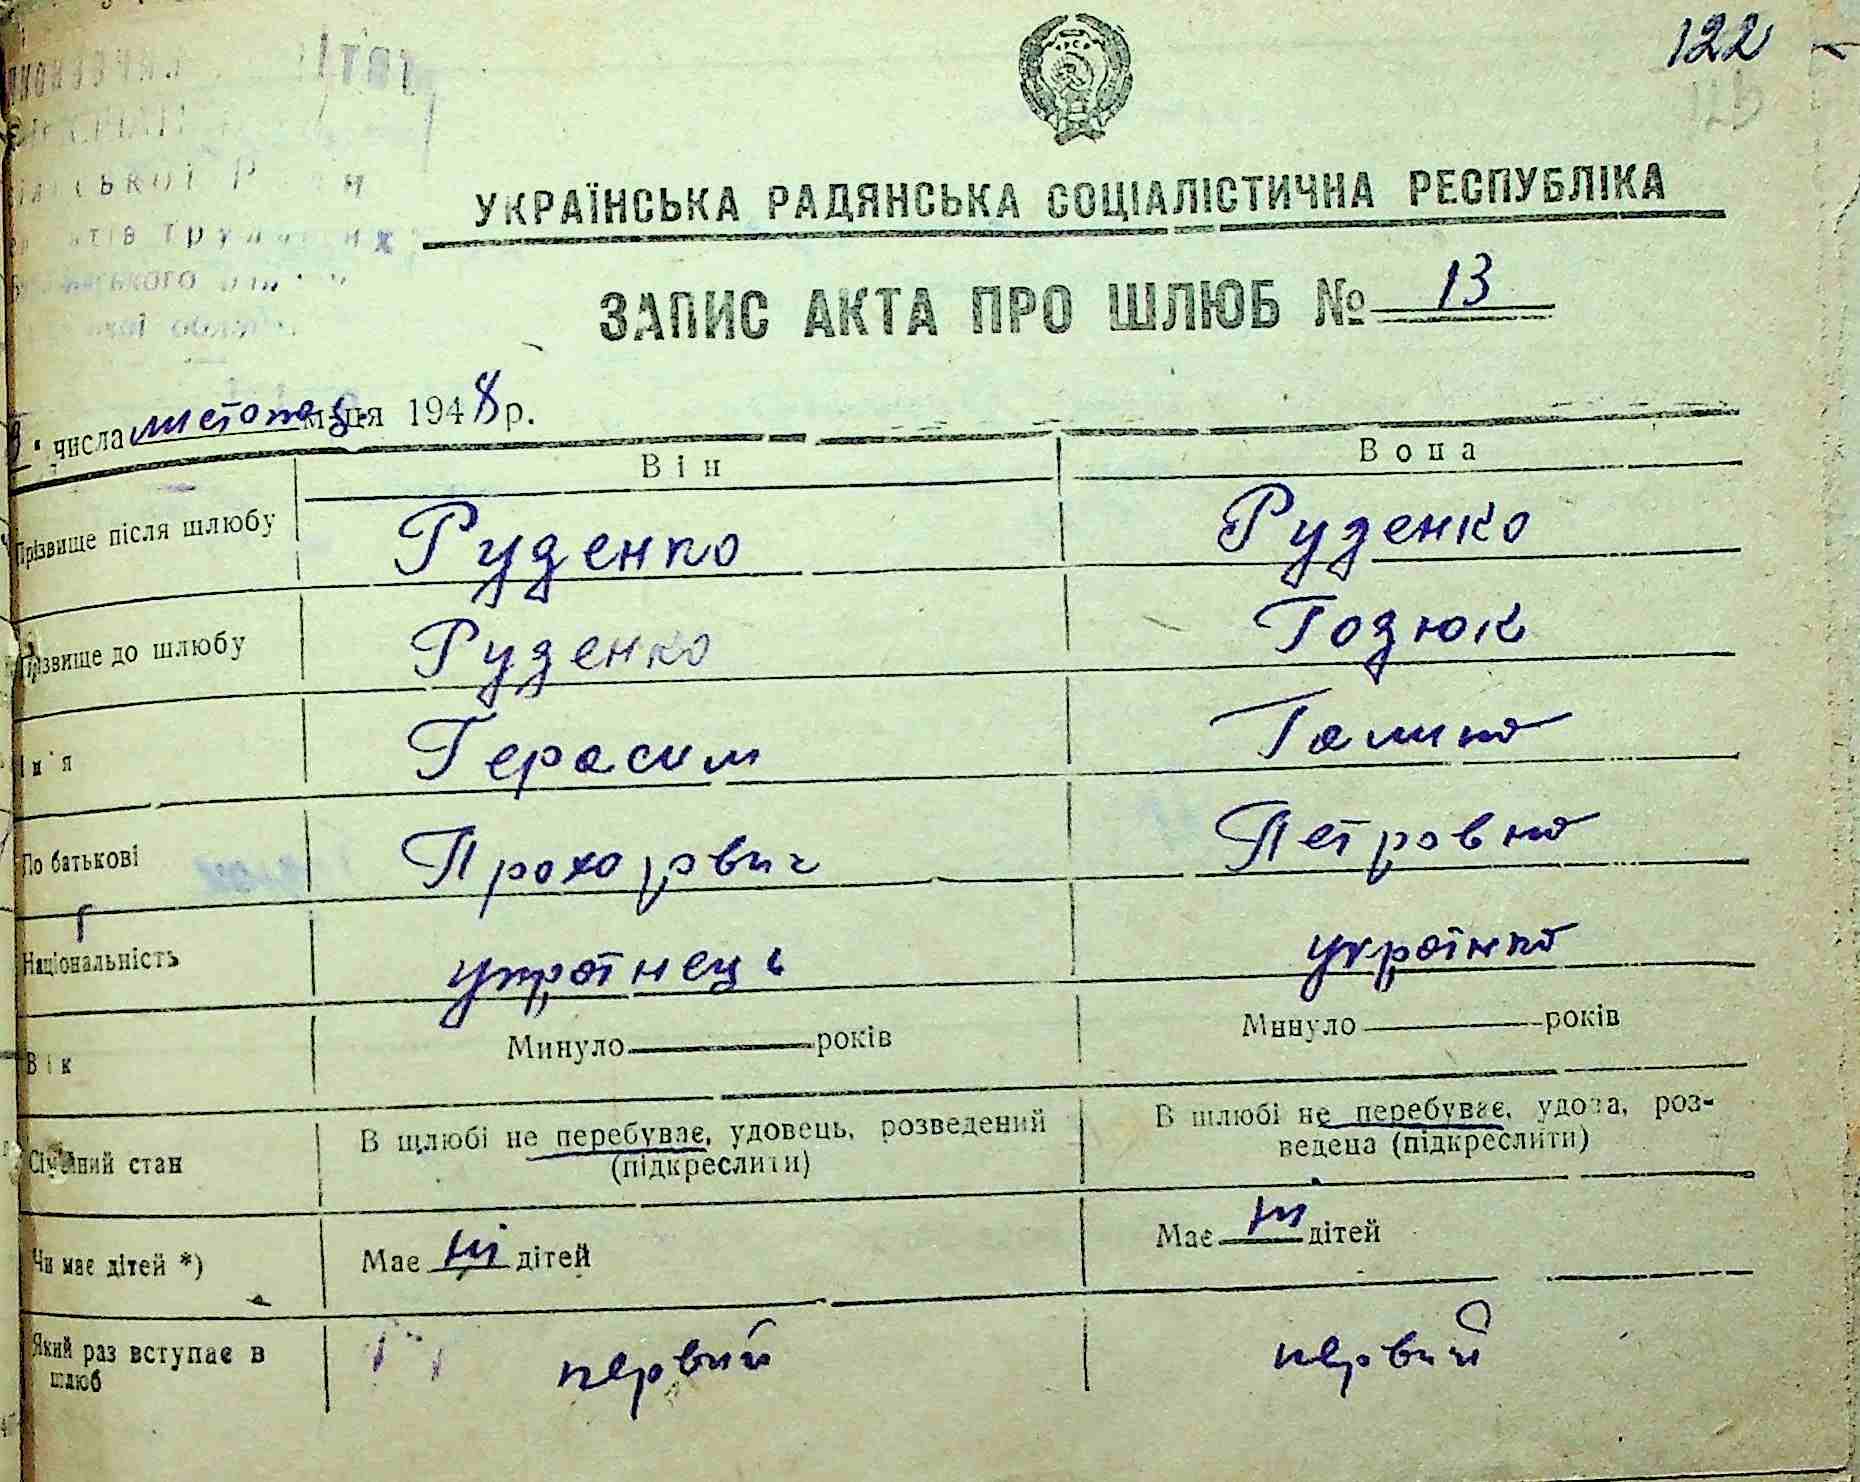 122
УКРАЇНСЬКА РАДЯНСЬКА СОЦІАЛІСТИЧНА РЕСПУБЛІКА
ЗАПИС АКТА ПРО ШЛЮБ № 13
числа листопад м-ця 1948 р.
Він Вона
Прізвище після шлюбу Руденко Руденко
Прізвище до шлюбу Руденко Годзюк
Ім'я Герасим Галина
По батькові Прохорович Петровна
Національність українець українка
Вік Минуло років Минуло років
Сімейний стан В шлюбі не перебуває, удовець, розведений (підкреслити) В шлюбі не перебуває, удова, роз-
ведена (підкреслити)
Чи має дітей *) Має ні дітей Має ні дітей
Який раз вступає в шлюб первий первий